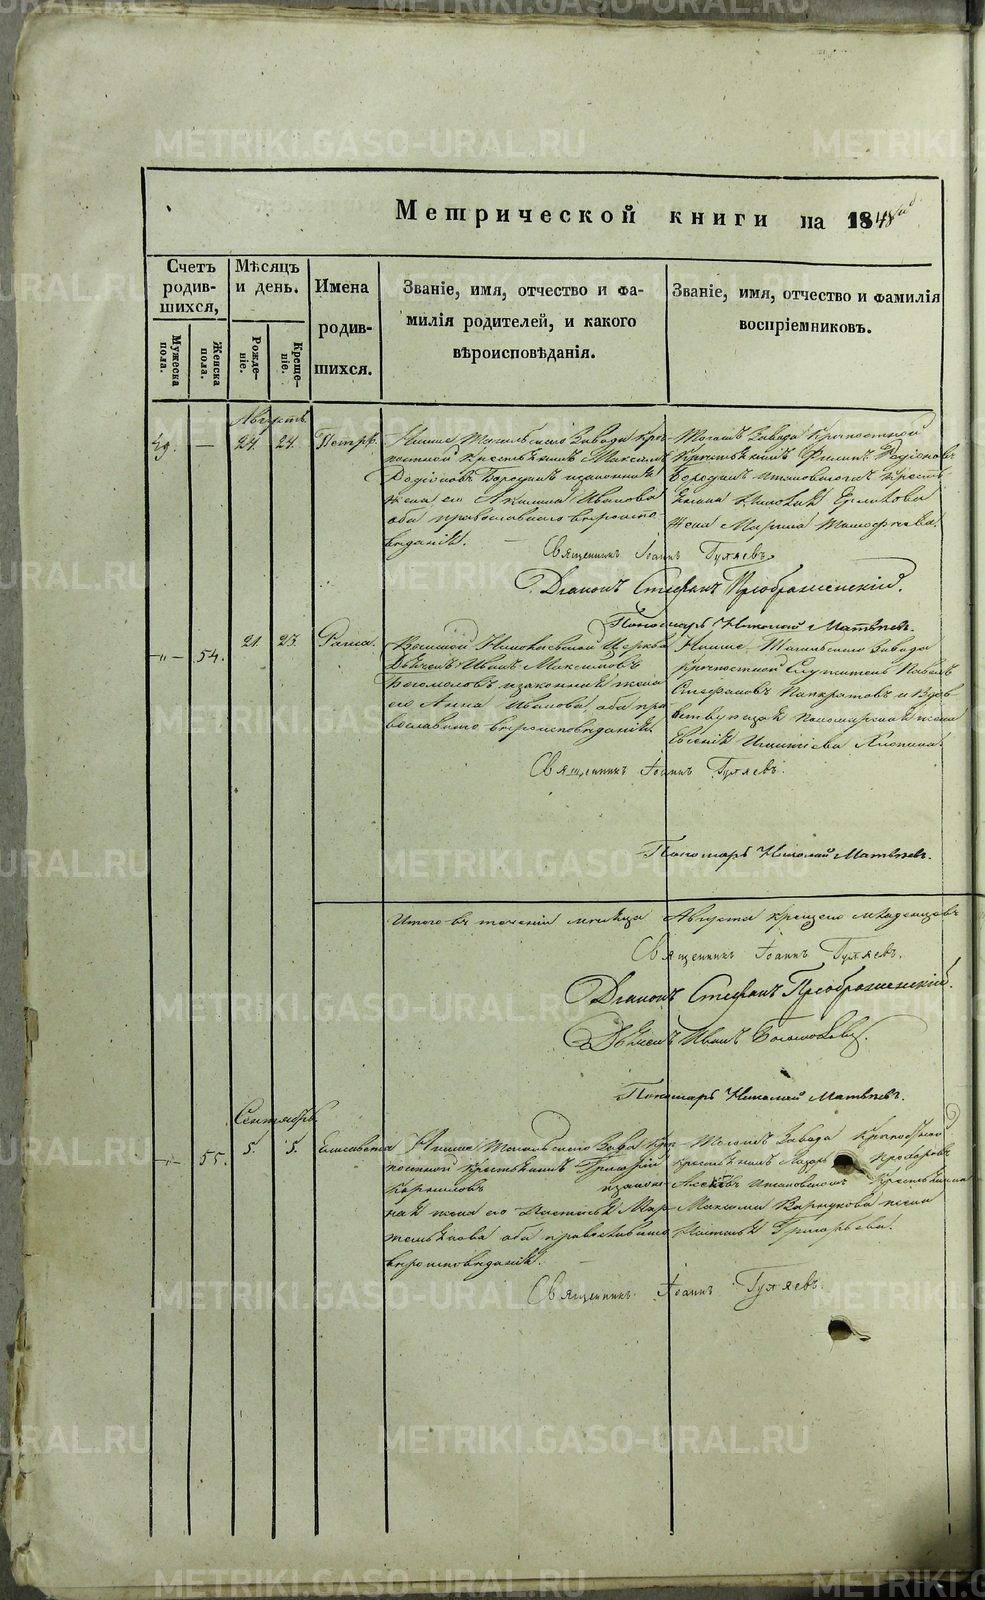 METRIKI.GASO-URAL.RU
Метрической книги на 1848 год
Счетъ родив-шихся,
Мужеска пола.
Женска пола.
Мѣсяцъ и день.
Рожде-ніе.
Креще-ніе.
Имена родив-шихся.
Званіе, имя, отчество и фа-
милія родителей, и какого
вѣроисповѣданія.
Званіе, имя, отчество и фамилія
воспріемниковъ.
Августъ
— 24. 24. Петръ.
Нижне Тагильскаго Завода крѣ-
постной крестьянинъ Максимъ
Родіоновъ Бородинъ и законная
жена его Акилина Иванова
оба православнаго вѣроиспо-
вѣданія.
Тогожъ Завода Крѣпостной
Крестьянинъ Филипъ Родіоновъ
Бородинъ
Ермакова
жена Марина Тимофеева
Священникъ Іоаннъ Гуляевъ.
Діаконъ Стефанъ Преображенскій.
Пономарь Николай Матвѣевъ.
-"- 54. 21. 23. Раиса.
Николаевской Церкви
Дьячекъ Иванъ Максимовъ
Богомоловъ и законная жена
его Анна Иванова оба пра-
вославнаго вѣроисповѣданія.
Нижне Тагильскаго Завода
крѣпостной Служитель Павелъ
Стефановъ Панкратовъ и Вдов-
ствующая пономарская жена
Евгенія Игнатіева Хлопина.
Священникъ Іоаннъ Гуляевъ.
Пономарь Николай Матвѣевъ.
Итого въ теченіи мѣсяца Августа крещено младенцовъ
Священникъ Іоаннъ Гуляевъ.
Діаконъ Стефанъ Преображенскій.
Дьячекъ Иванъ Богомоловъ.
Пономарь Николай Матвѣевъ.
Сентябрь
-"- 55. 5. 5. Елисавета
Нижне Тагильскаго Заво. Крѣ-
постной крестьянинъ Григорій
Корниловъ и закон-
ная жена его Настасья Мар-
оба православнаго
вѣроисповѣданія.
Тогожъ Завода Крѣпостной
крестьянинъ Лазарь Прохоровъ
Крестьянина
Максима жена
Наталья Григорьева.
Священникъ Іоаннъ Гуляевъ.